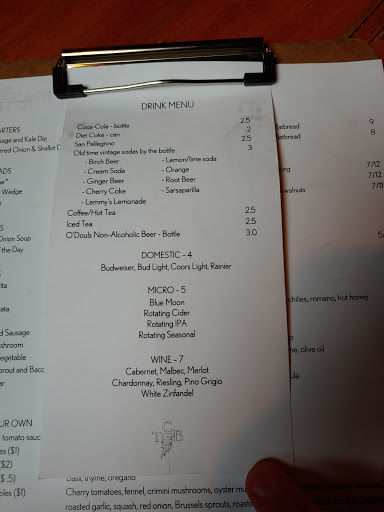 DRINK MENU
Coca-Cola - bottle 2.5
Diet Coke - can 2
San Pellegrino 2.5
Old time vintage sodas by the bottle 3
- Birch Beer - Lemon/lime soda
- Cream Soda - Orange
- Ginger Beer - Root Beer
- Cherry Coke - Sarsaparilla
- Lemmy's Lemonade
Coffee/Hot Tea 2.5
Iced Tea 2.5
O'Douls Non-Alcoholic Beer - Bottle 3.0
DOMESTIC - 4
Budweiser, Bud Light, Coors Light, Rainier
MICRO - 5
Blue Moon
Rotating Cider
Rotating IPA
Rotating Seasonal
WINE - 7
Cabernet, Malbec, Merlot
Chardonnay, Riesling, Pino Grigio
White Zinfandel
T C B
and Kale Dip
Onion & Shallot D
Wedge
Onion Soup
the Day
Sausage
and Bacc
UR OWN
tomato sauc
($1)
($2)
($.5)
($1)
flatbread 9
flatbread 8
7/12
7/12
walnuts 7/11
chilies, romano, hot honey
olive oil
basil, thyme, oregano
Cherry tomatoes, fennel, crimini mushrooms, oyster mu
roasted garlic, squash, red onion, Brussels sprouts, roast